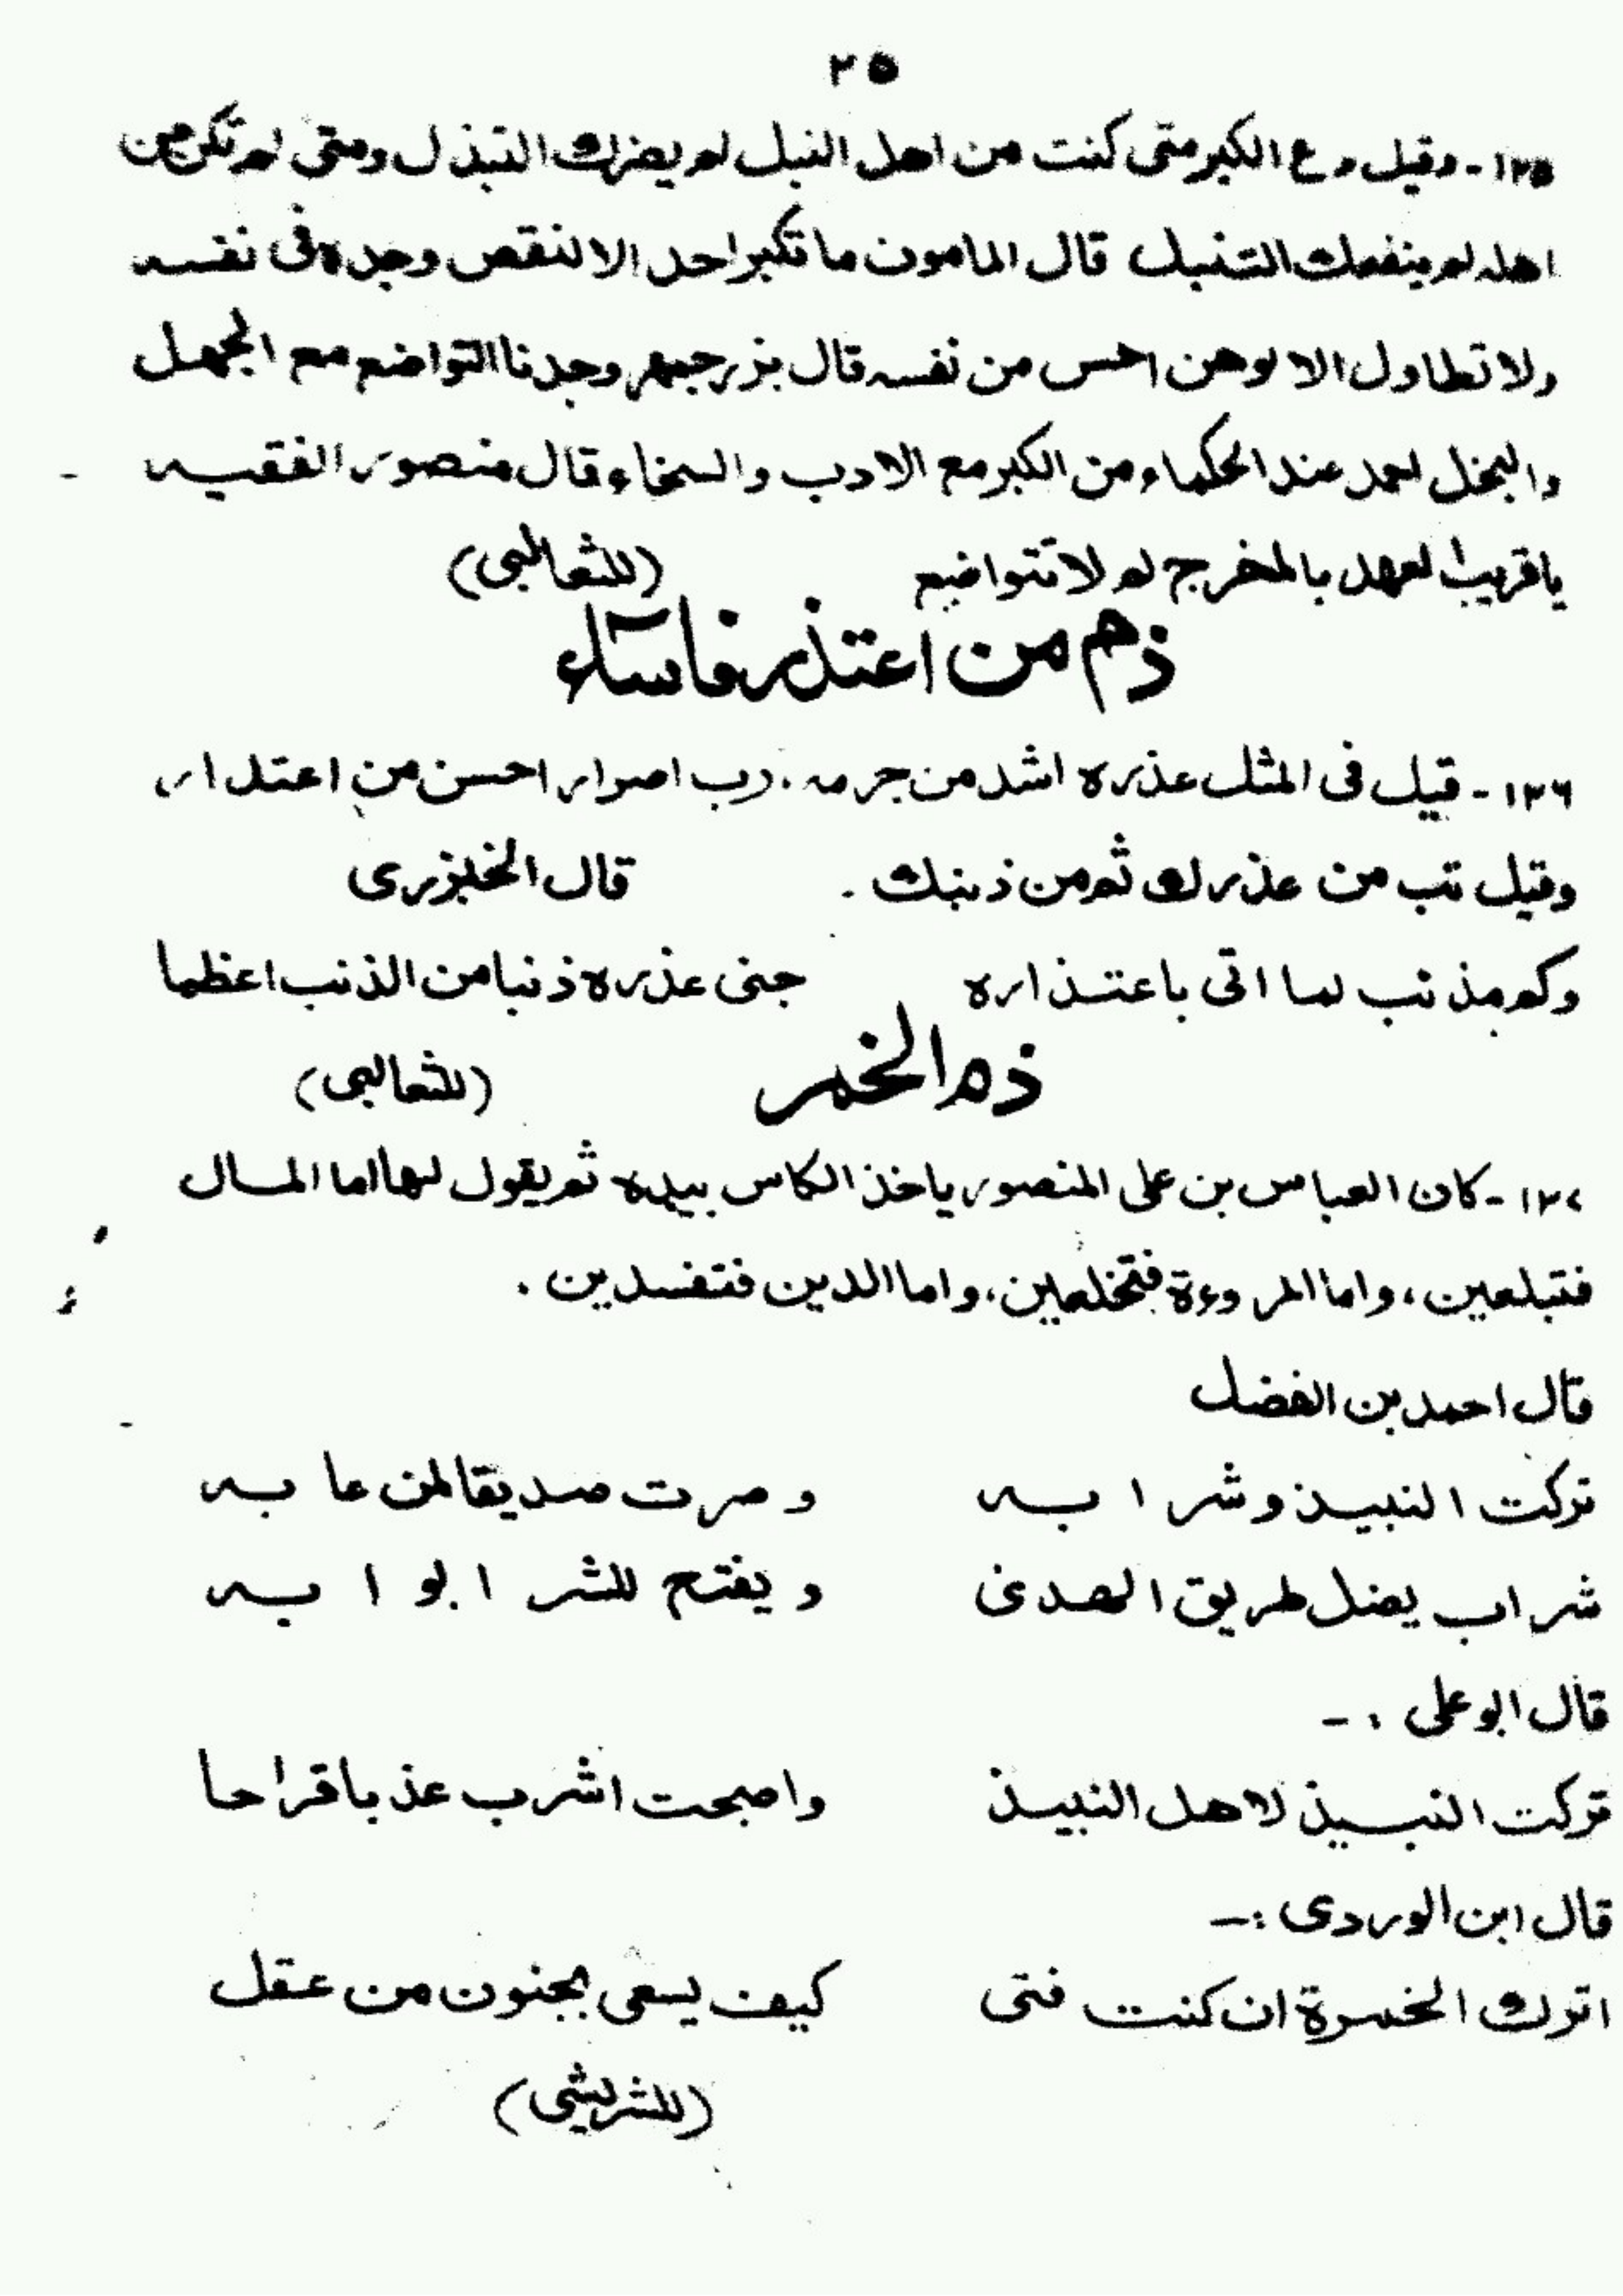 ٢٥
١٢٥ - وقيل دع الكبر متى كنت من اهل النبل لم يضرك التبذل ومتى لم تكن من
اهله لم ينفعك التنبل قال المامون ما تكبر احد الا لنقص وجده فى نفسه
ولا تطاول الا لوهن احس من نفسه قال بزرجمهر وجدنا التواضع مع الجهل
والبخل احمد عند الحكماء من الكبر مع الادب والسخاء قال منصور الفقيه
يا قريب العهد بالمخرج لم لا تتواضع (للثعالبى)
ذم من اعتذر فاساء
١٢٦ - قيل فى المثل عذره اشد من جرمه . رب اصرار احسن من اعتذار
وقيل تب من عذرك ثم من ذنبك . قال الخبزرى
وكم مذنب لما اتى باعتذاره جنى عذره ذنبا من الذنب اعظما
ذم الخمر (للثعالبى)
١٢٧ - كان العباس بن على المنصور ياخذ الكاس بيده ثم يقول لها اما المال
فتبلعين، واما المروءة فتخلعين، واما الدين فتفسدين .
قال احمد بن الفضل
تركت النبيذ وشرابه وصرت صديقا لمن عابه
شراب يضل طريق الهدى ويفتح للشر ابوابه
قال ابو على :-
تركت النبيذ لاهل النبيذ واصبحت اشرب عذبا قراحا
قال ابن الوردى :-
اترك الخمرة ان كنت فتى كيف يسعى بجنون من عقل
(للشريشى)